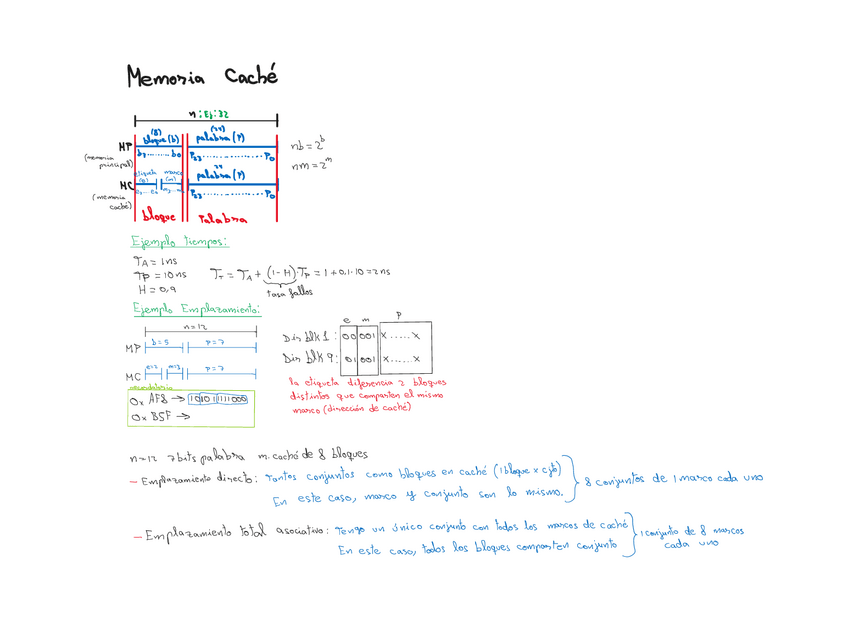 Memoria Caché
n: Ej: 32
(8) (24)
MP bloque (b) palabra (P)
(memoria principal) b7......b0 P23..............P0
etiqueta marco 24
(e) (m) palabra (P)
MC P23..............P0
(memoria caché)
bloque Palabra
nb = 2^b
nm = 2^m
Ejemplo tiempos:
TA = 1ns
TP = 10ns
H = 0,9
TT = TA + (1-H)·TP = 1+0,1·10 = 2ns
tasa fallos
Ejemplo Emplazamiento:
n=12
MP b=5 p=7
MC e=2 m=3 p=7
0x AF8 → 101011111000
0x B5F →
e m P
Dir blk 1: 00 001 X.....X
Dir blk 9: 01 001 X.....X
la etiqueta diferencia 2 bloques
distintos que comparten el mismo
marco (dirección de caché)
n=12 7bits palabra m. caché de 8 bloques
- Emplazamiento directo: Tantos conjuntos como bloques en caché (1 bloque x cjto)
En este caso, marco y conjunto son lo mismo.
8 conjuntos de 1 marco cada uno
- Emplazamiento total asociativo: Tengo un único conjunto con todos los marcos de caché
En este caso, todos los bloques comparten conjunto
1 conjunto de 8 marcos
cada uno